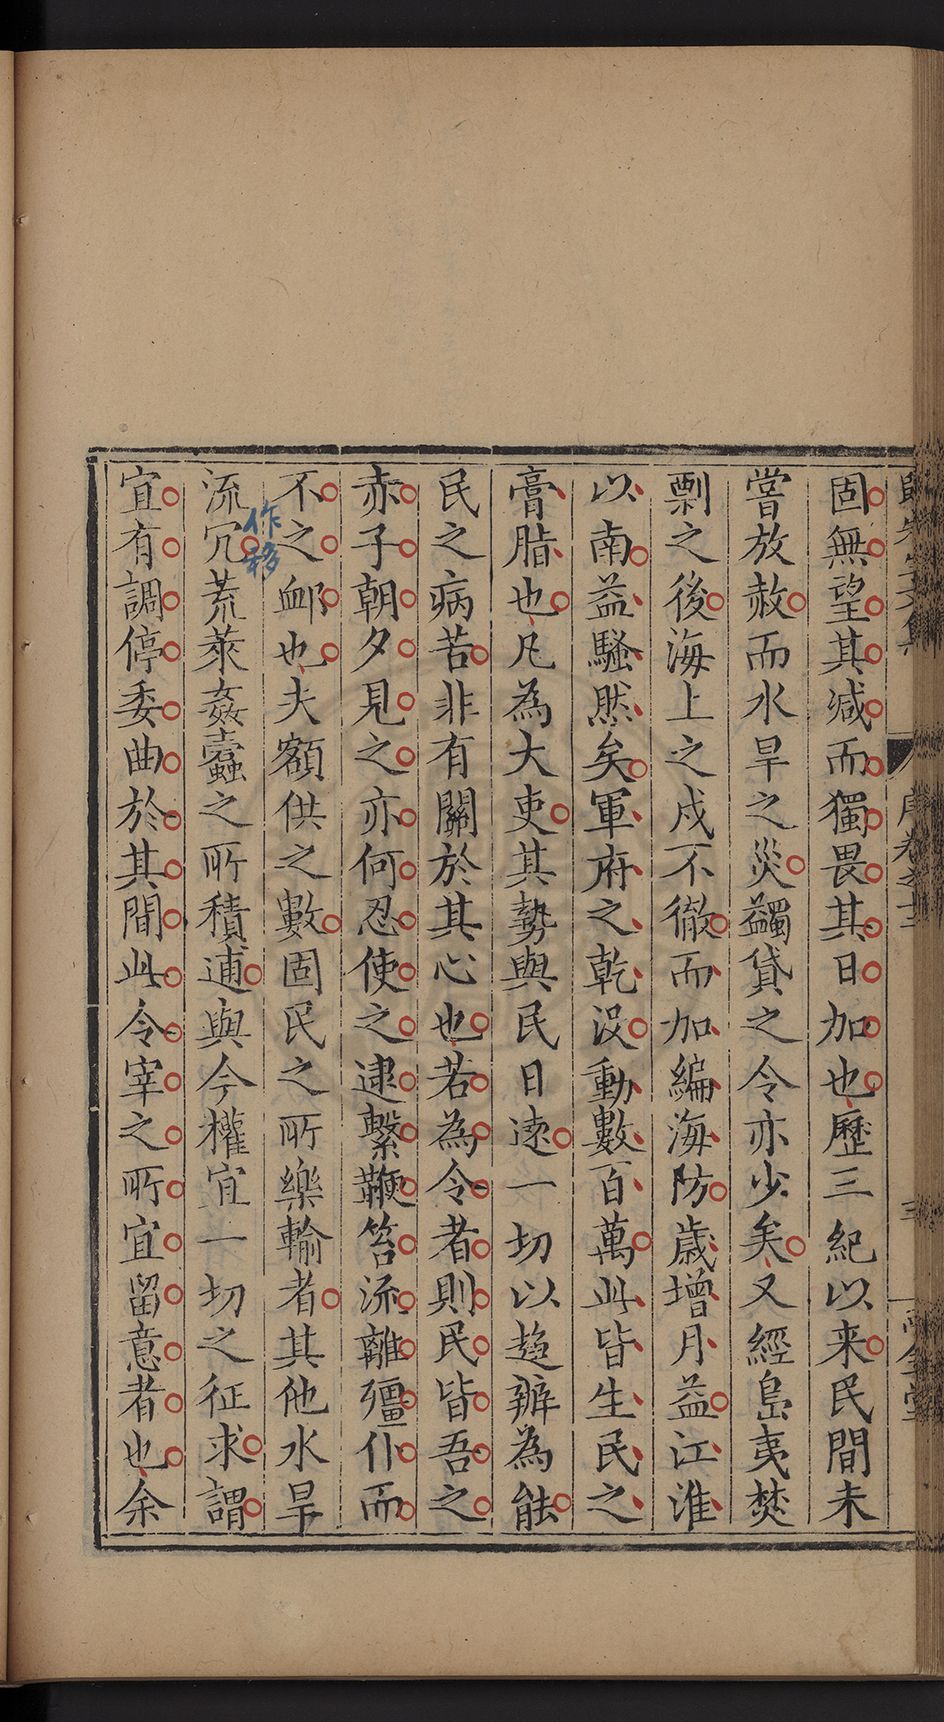 固無望其減而獨畏其日加也歷三紀以来民間未
嘗放赦而水旱之災蠲貸之令亦少矣又經島夷焚
剽之後海上之戍不徹而加編海防歲增月益江淮
以南益騷然矣軍府之乾没動數百萬此皆生民之
膏脂也凡為大吏其勢與民日逺一切以趋辦為能
民之病苦非有關於其心也若為令者則民皆吾之
赤子朝夕見之亦何忍使之逮繫鞭笞流離殭仆而
不之邺也夫額供之數固民之所樂輸者其他水旱
作移
流冗荒萊姦蠹之所積逋與今權宜一切之征求謂
宜有調停委曲於其間此令宰之所宜留意者也余